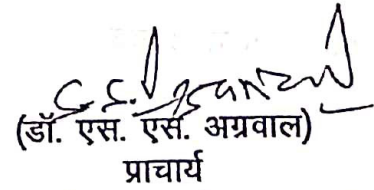 (डॉ. एस. एस. अग्रवाल)
प्राचार्य